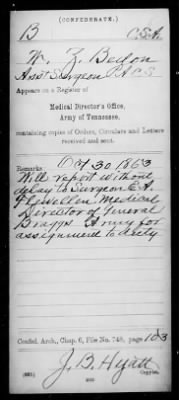 (CONFEDERATE.)
B C.S.A.
W. Z. Beson
Asst Surgeon P.A.C.S.
Appears on a Register of
Medical Director's Office,
Army of Tennessee,
containing copies of Orders, Circulars and Letters
received and sent.
Remarks: Oct 30, 1863
Will report without
delay to Surgeon E. A.
Flewellen Medical
Director of General
Braggs Army for
assignment to duty
Confed. Arch., Chap. 6, File No. 748, page 103
J. B. Hyatt
Copyist.